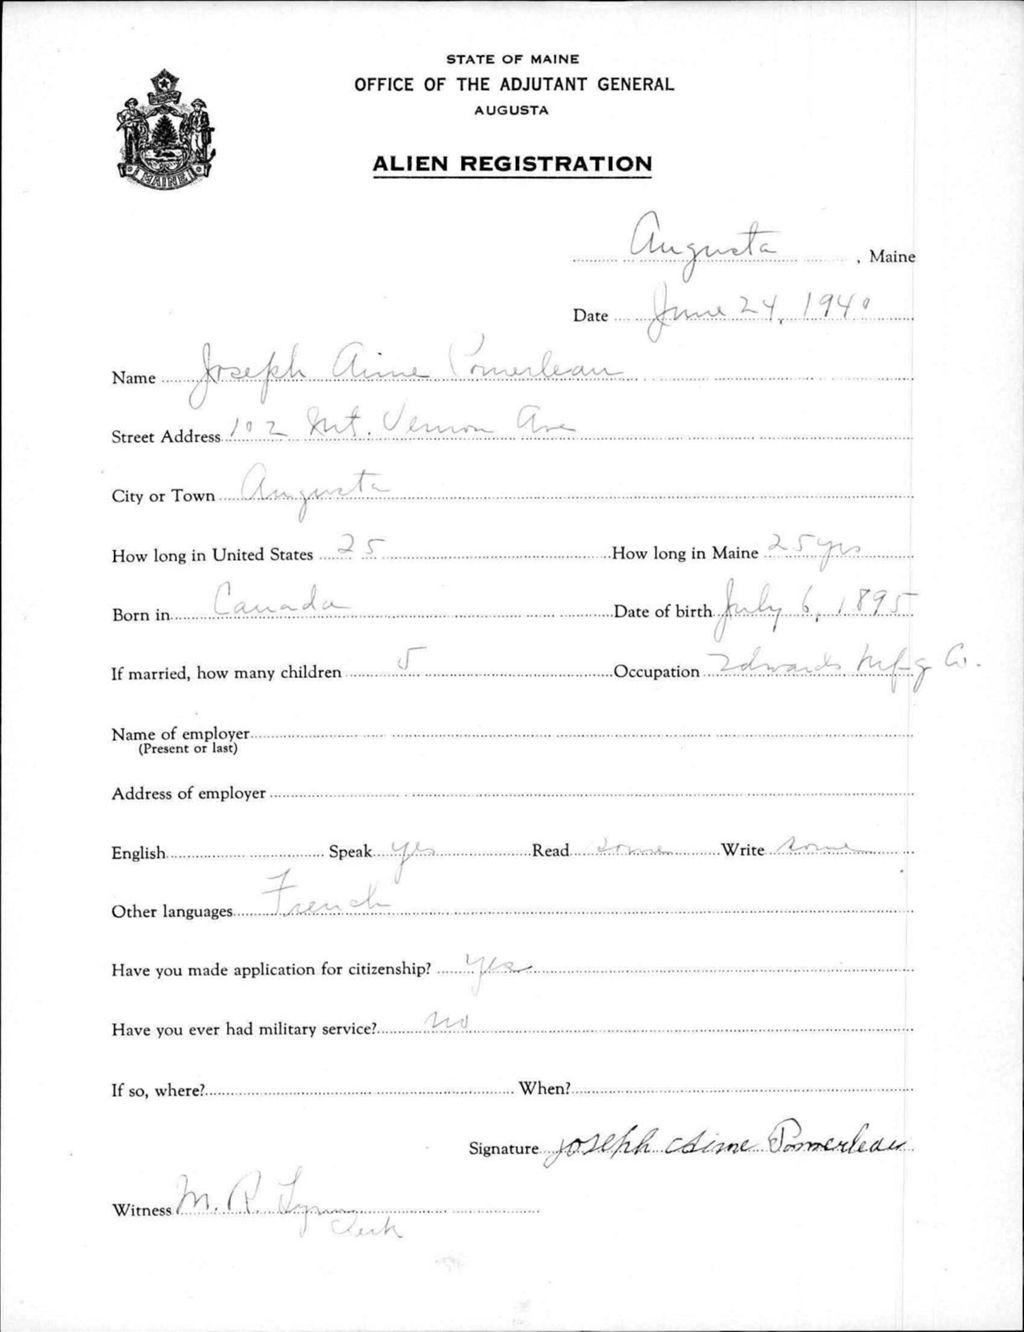 STATE OF MAINE
OFFICE OF THE ADJUTANT GENERAL
AUGUSTA
ALIEN REGISTRATION
MAINE
Augusta, Maine
Date June 24, 1940
Name Joseph Aime Pomerleau
Street Address 102 Mt. Vernon Ave
City or Town Augusta
How long in United States 25 How long in Maine 25 yrs
Born in Canada Date of birth July 6, 1895
If married, how many children 5 Occupation Edwards Mfg Co.
Name of employer
(Present or last)
Address of employer
English Speak yes Read some Write some
Other languages French
Have you made application for citizenship? Yes
Have you ever had military service? no
If so, where? When?
Signature Joseph Aime Pomerleau
Witness M. R.
Clerk